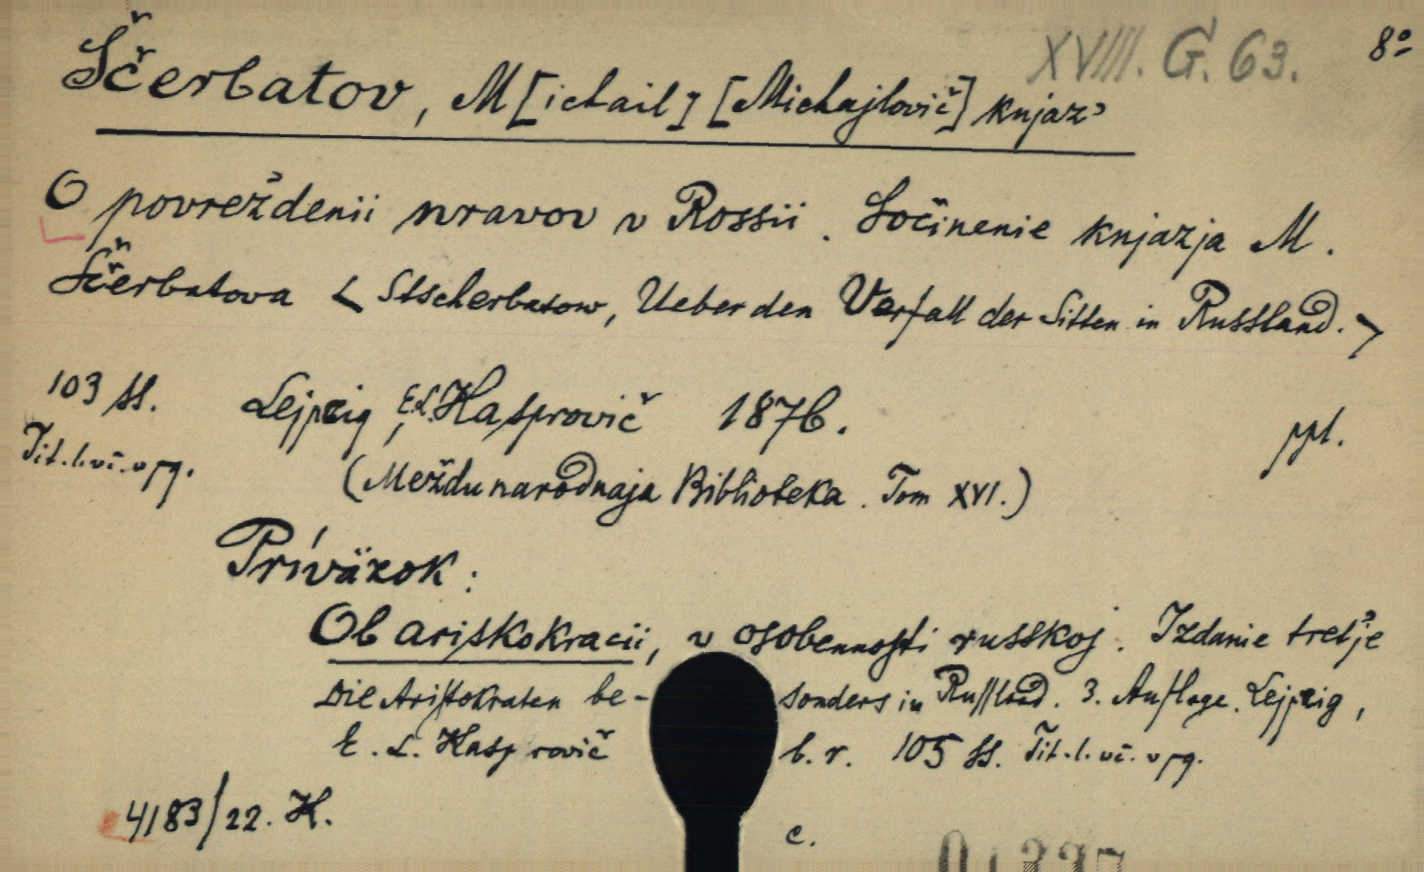 XVIII. G. 63. 8°
Ščerbatov, M[ichail] [Michajlovič] knjaz'
O povrež'denii nravov v Rossii. Sočinenie knjazja M.
Ščerbatova < Stscherbatow, Ueber den Verfall der Sitten in Russland. >
103 ss. Lejpzig, E.L. Kasprovič 1876. ppl.
Tit. l. vč. v pg. (Meždunarodnaja Biblioteka. Tom XVI.)
Príväzok:
Ob ariskokracii, v osobennosti russkoj. Izdanie tret'je
Die Aristokraten be- sonders in Russland. 3. Auflage. Lejpzig,
E. L. Kasprovič b. r. 105 ss. Tit. l. vč. v pg.
4183/22. K. c.